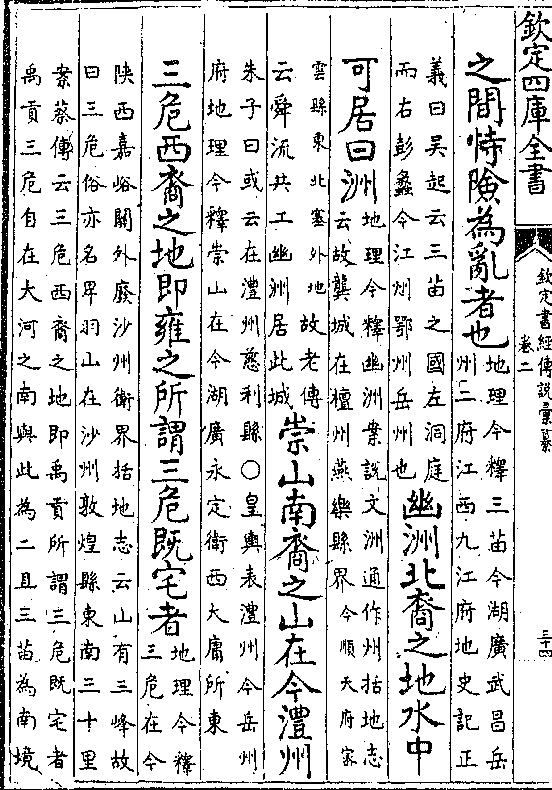 欽定四庫全書
欽定書經傳說彙纂
卷二
三十四
之間恃險為亂者也
地理今釋三苗今湖廣武昌岳
州二府江西九江府地史記正
義曰吳起云三苗之國左洞庭
而右彭蠡今江州鄂州岳州也
幽洲北裔之地水中
可居曰洲
地理今釋幽洲案說文洲通作州括地志
云故龔城在檀州燕樂縣界今順天府密
雲縣東北塞外地故老傳
云舜流共工幽洲居此城
崇山南裔之山在今澧州
朱子曰或云在澧州慈利縣○皇輿表澧州今岳州
府地理今釋崇山在今湖廣永定衛西大庸所東
三危西裔之地即雍之所謂三危既宅者
地理今釋
三危在今
陜西嘉峪關外廢沙州衛界括地志云山有三峰故
曰三危俗亦名卑羽山在沙州敦煌縣東南三十里
案蔡傳云三危西裔之地即禹貢所謂三危既宅者
禹貢三危自在大河之南與此為二且三苗為南境